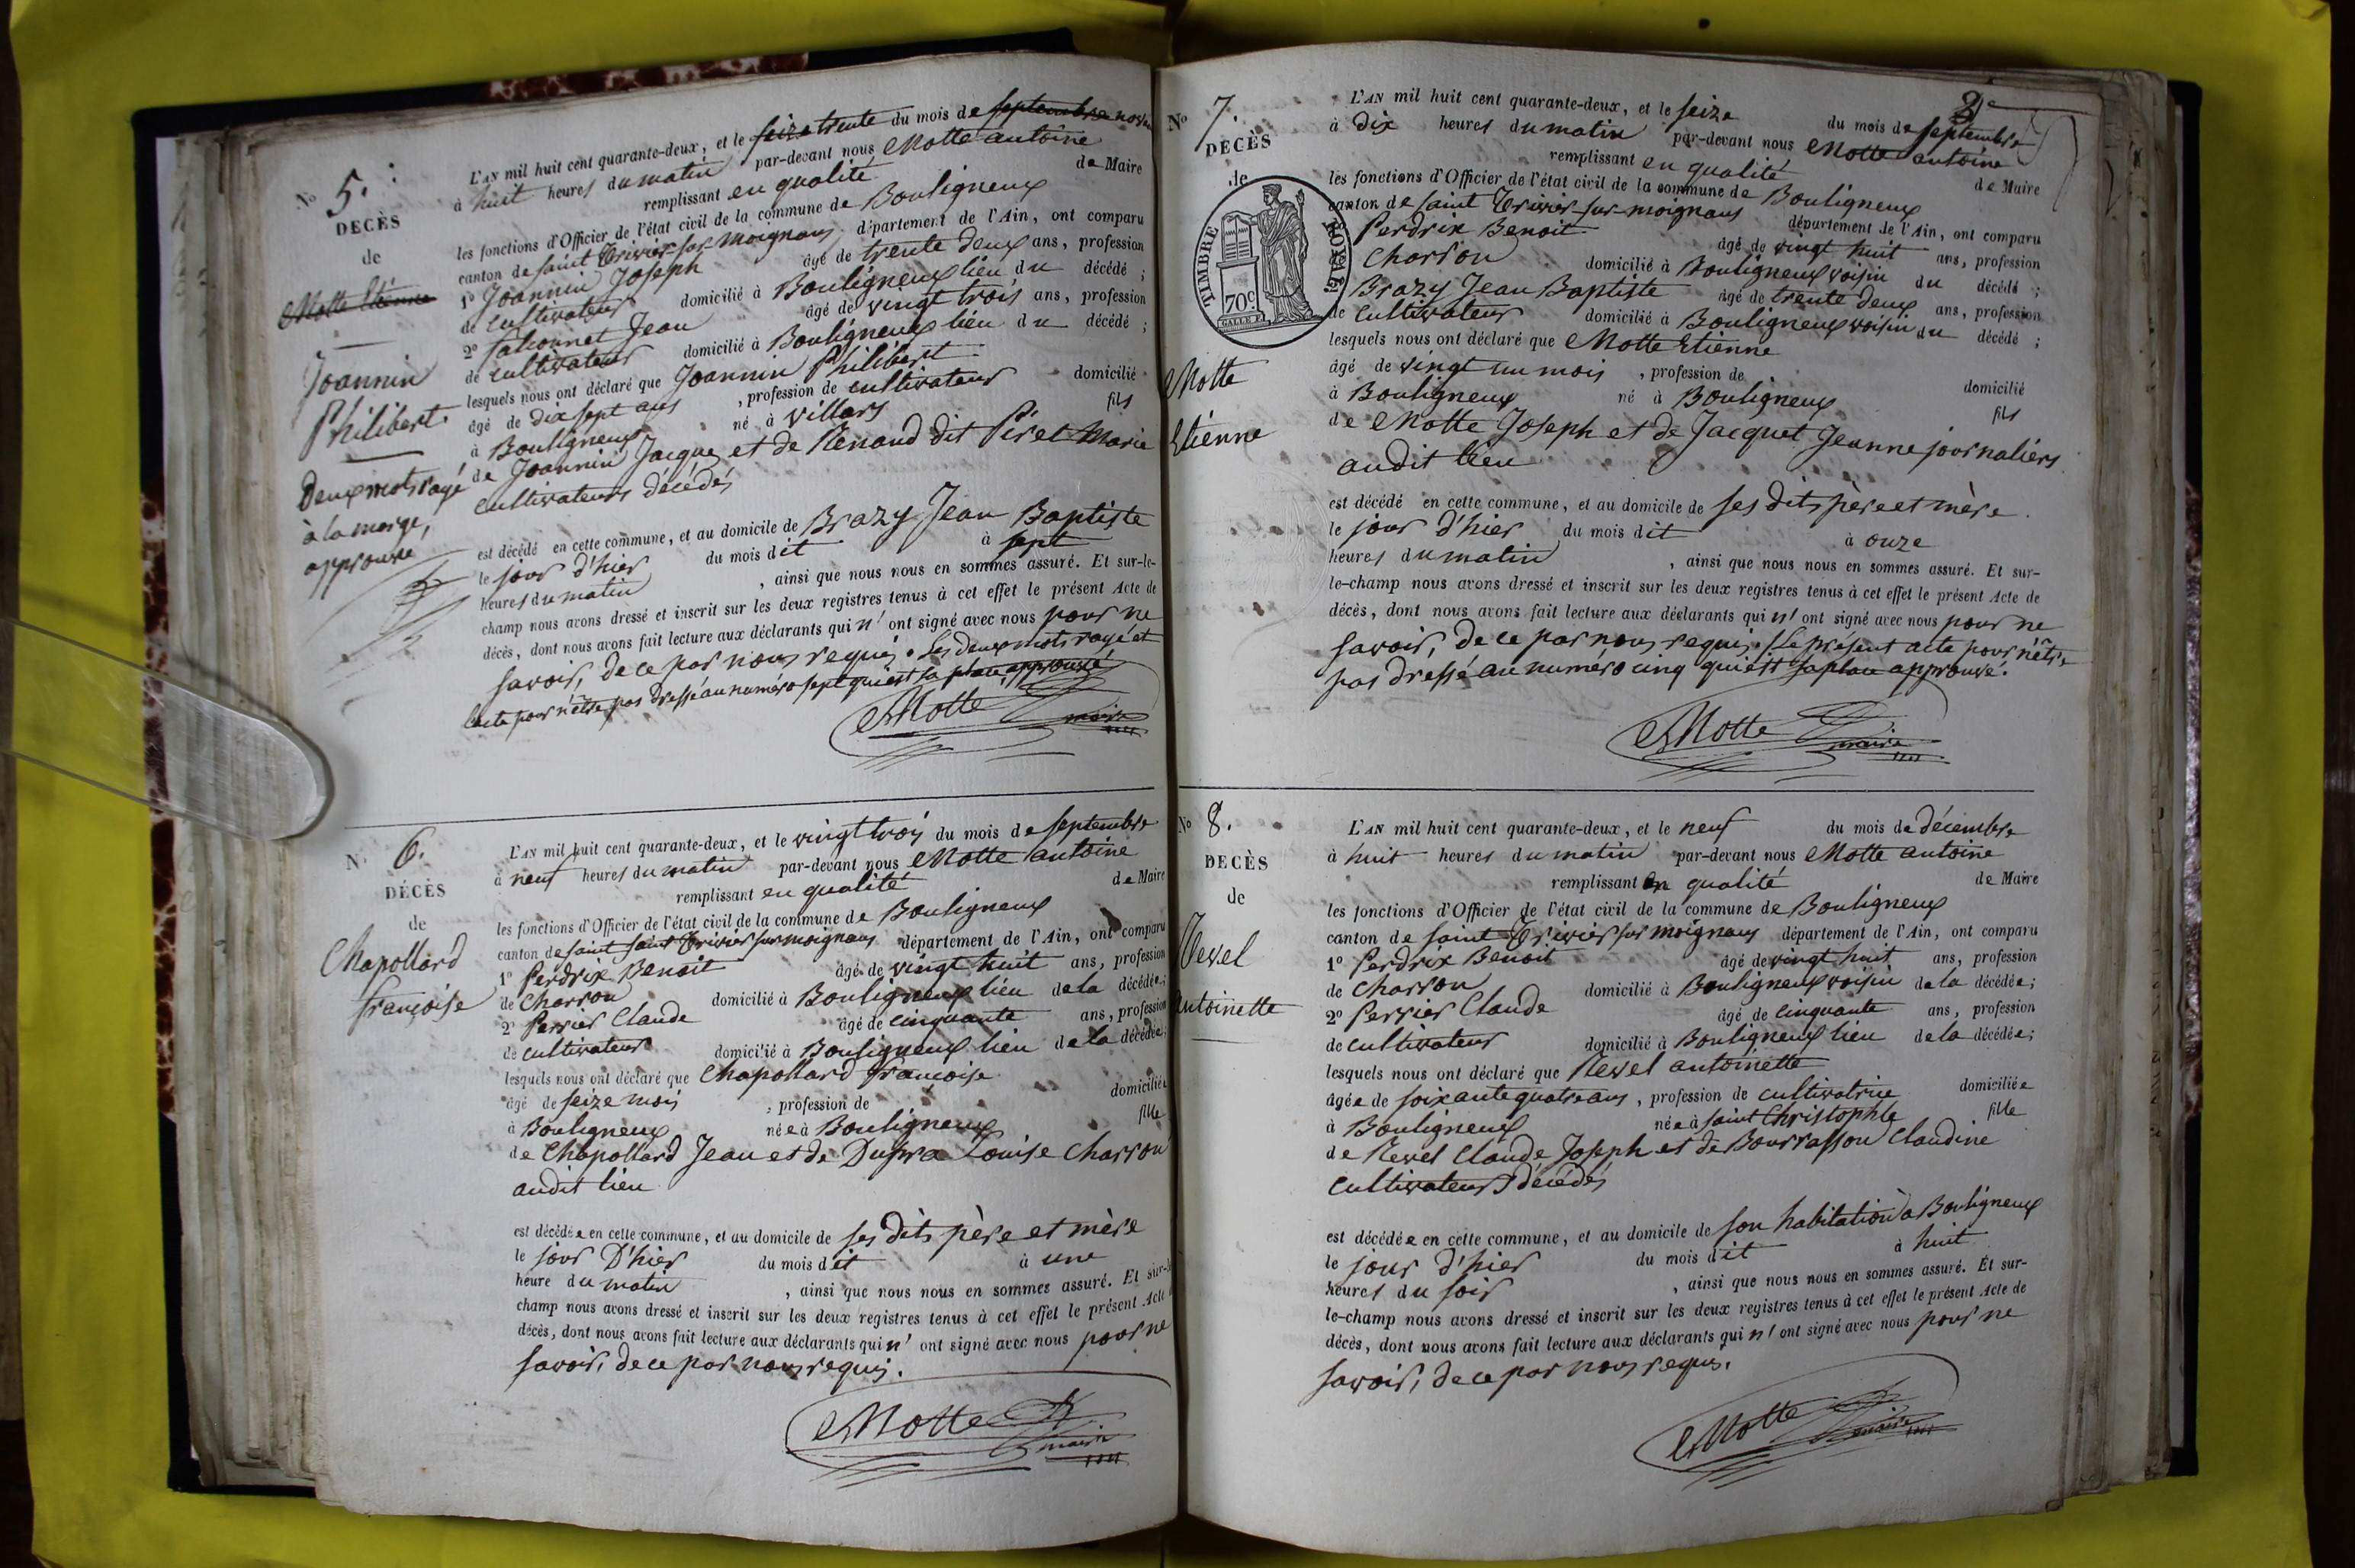 N° 5.
DÉCÈS
de
Motte Etienne
Joannin
Philibert
Deux mots rayé
à la marge,
approuvé
L'AN mil huit cent quarante-deux, et le seize trente du mois de septembre
à huit heures du matin par-devant nous Motte antoine
remplissant en qualité de Maire
les fonctions d'Officier de l'état civil de la commune de Bouligneux
canton de saint Trivier-sur-moignans département de l'Ain, ont comparu
1° Joannin Joseph âgé de trente deux ans, profession
de cultivateur domicilié à Bouligneux lieu du décédé;
2° Jean âgé de vingt trois ans, profession
de cultivateur domicilié à Bouligneux lieu du décédé;
lesquels nous ont déclaré que Joannin Philibert
âgé de dix sept ans, profession de cultivateur domicilié
à Bouligneux né à villars fils
de Joannin Jacques et de Renaud dit Piret Marie
cultivateurs décédés
est décédé en cette commune, et au domicile de Brazy Jean Baptiste
le jour d'hier du mois dit à sept
heures du matin, ainsi que nous nous en sommes assuré. Et sur-le-
champ nous avons dressé et inscrit sur les deux registres tenus à cet effet le présent Acte de
décès, dont nous avons fait lecture aux déclarants qui n'ont signé avec nous pour ne
savoir, de ce par nous requis. Les deux mots rayé et
l'acte pour n'être pas dressé au numéro sept qui est sa place approuvé.
Motte
maire
N° 6.
DÉCÈS
de
Chapollard
françoise
L'AN mil huit cent quarante-deux, et le vingt trois du mois de septembre
à neuf heures du matin par-devant nous Motte antoine
remplissant en qualité de Maire
les fonctions d'Officier de l'état civil de la commune de Bouligneux
canton de saint saint Trivier sur moignans département de l'Ain, ont comparu
1° Perdrix Benoit âgé de vingt huit ans, profession
de Charron domicilié à Bouligneux lieu de la décédée;
2° Perrier Claude âgé de cinquante ans, profession
de cultivateur domicilié à Bouligneux lieu de la décédée;
lesquels nous ont déclaré que Chapollard françoise
âgé de seize mois, profession de domiciliée
à Bouligneux née à Bouligneux fille
de Chapollard Jean et de Dupra Louise Charron
audit lieu
est décédée en cette commune, et au domicile de ses dits père et mère
le jour D'hier du mois dit à une
heure du matin, ainsi que nous nous en sommes assuré. Et sur-le
champ nous avons dressé et inscrit sur les deux registres tenus à cet effet le présent Acte
décès, dont nous avons fait lecture aux déclarants qui n'ont signé avec nous pour ne
savoir, de ce par nous requis.
Motte
maire
N° 7.
DÉCÈS
de
TIMBRE ROYAL
70 c
Motte
Etienne
L'AN mil huit cent quarante-deux, et le seize du mois de septembre
à dix heures du matin par-devant nous Motte antoine
remplissant en qualité de Maire
les fonctions d'Officier de l'état civil de la commune de Bouligneux
canton de saint Trivier-sur-moignans département de l'Ain, ont comparu
Perdrix Benoit âgé de vingt huit ans, profession
Charron domicilié à Bouligneux voisin du décédé;
Brazy Jean Baptiste âgé de trente deux ans, profession
de cultivateur domicilié à Bouligneux voisin du décédé;
lesquels nous ont déclaré que Motte Etienne
âgé de vingt un mois, profession de domicilié
à Bouligneux né à Bouligneux fils
de Motte Joseph et de Jacquet Jeanne journaliers
audit lieu
est décédé en cette commune, et au domicile de ses dits père et mère.
le jour d'hier du mois dit à onze
heures du matin, ainsi que nous nous en sommes assuré. Et sur-
le-champ nous avons dressé et inscrit sur les deux registres tenus à cet effet le présent Acte de
décès, dont nous avons fait lecture aux déclarants qui n'ont signé avec nous pour ne
savoir, de ce par nous requis. Le présent acte pour n'être
pas dressé au numéro cinq qui est sa place approuvé.
Motte
maire
N° 8.
DÉCÈS
de
Revel
antoinette
L'AN mil huit cent quarante-deux, et le neuf du mois de décembre
à huit heures du matin par-devant nous Motte antoine
remplissant en qualité de Maire
les fonctions d'Officier de l'état civil de la commune de Bouligneux
canton de saint Trivier sur moignans département de l'Ain, ont comparu
1° Perdrix Benoit âgé de vingt huit ans, profession
de Charron domicilié à Bouligneux voisin de la décédée;
2° Perrier Claude âgé de cinquante ans, profession
de cultivateur domicilié à Bouligneux lieu de la décédée;
lesquels nous ont déclaré que Revel antoinette
âgée de soixante quatre ans, profession de cultivatrice domiciliée
à Bouligneux née à saint Christophle fille
de Revel Claude Joseph et de Bourrasson Claudine
cultivateurs décédés
est décédée en cette commune, et au domicile de son habitation à Bouligneux
le jour d'hier du mois dit à huit
heures du soir, ainsi que nous nous en sommes assuré. Et sur-
le-champ nous avons dressé et inscrit sur les deux registres tenus à cet effet le présent Acte de
décès, dont nous avons fait lecture aux déclarants qui n'ont signé avec nous pour ne
savoir, de ce par nous requis.
Motte
maire